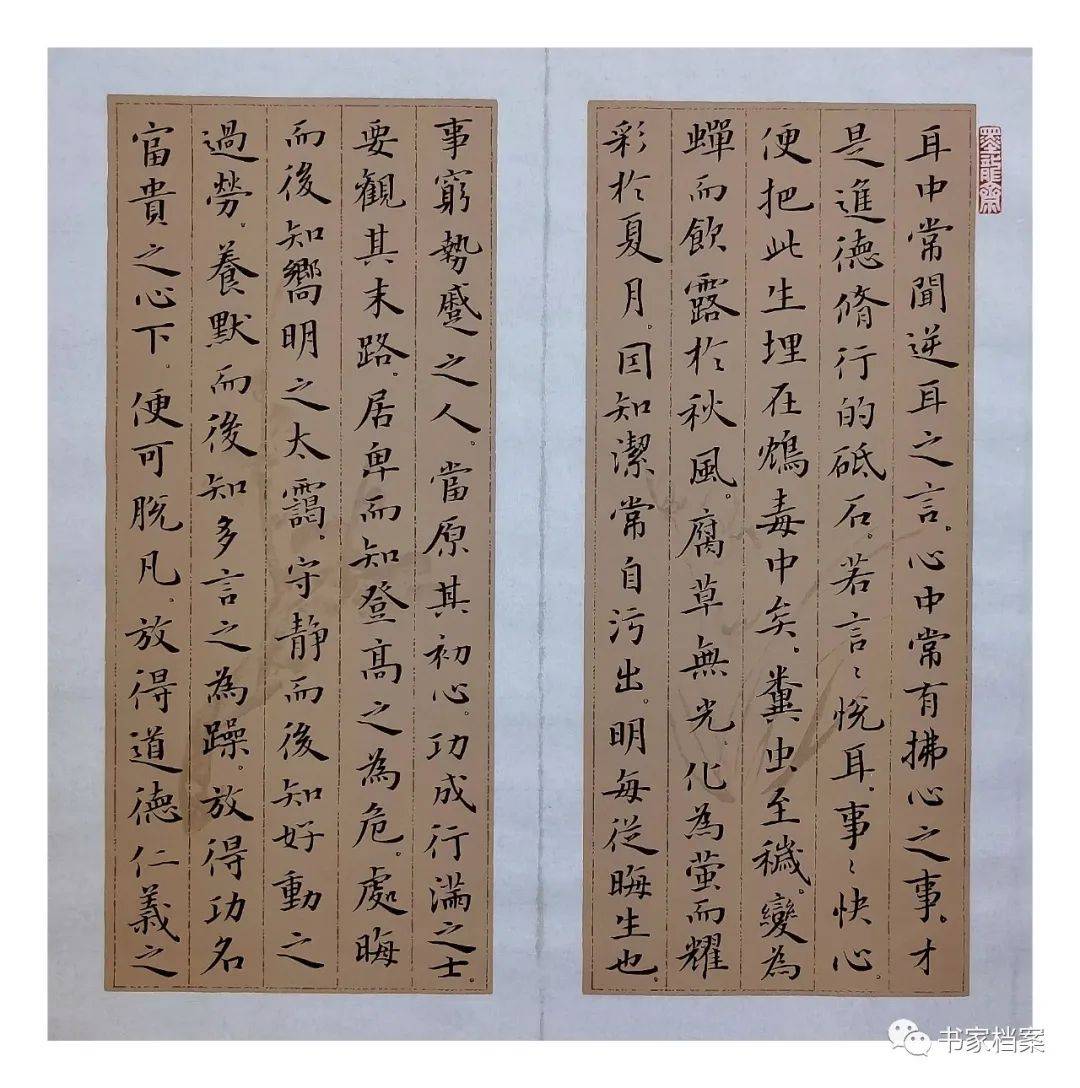 墨龍齋
耳中常聞逆耳之言。心中常有拂心之事。才
是進德脩行的砥石。若言〻悦耳。事〻快心。
便把此生埋在鴆毒中矣。糞虫至穢。變為
蟬而飲露於秋風。腐草無光。化為萤而耀
彩於夏月。因知潔常自污出。明每從晦生也。
事窮勢蹙之人。當原其初心。功成行滿之士。
要觀其末路。居卑而知登高之為危。處晦
而後知嚮明之太靄。守静而後知好動之
過勞。養默而後知多言之為躁。放得功名
富貴之心下。便可脫凡。放得道德仁義之
书家档案